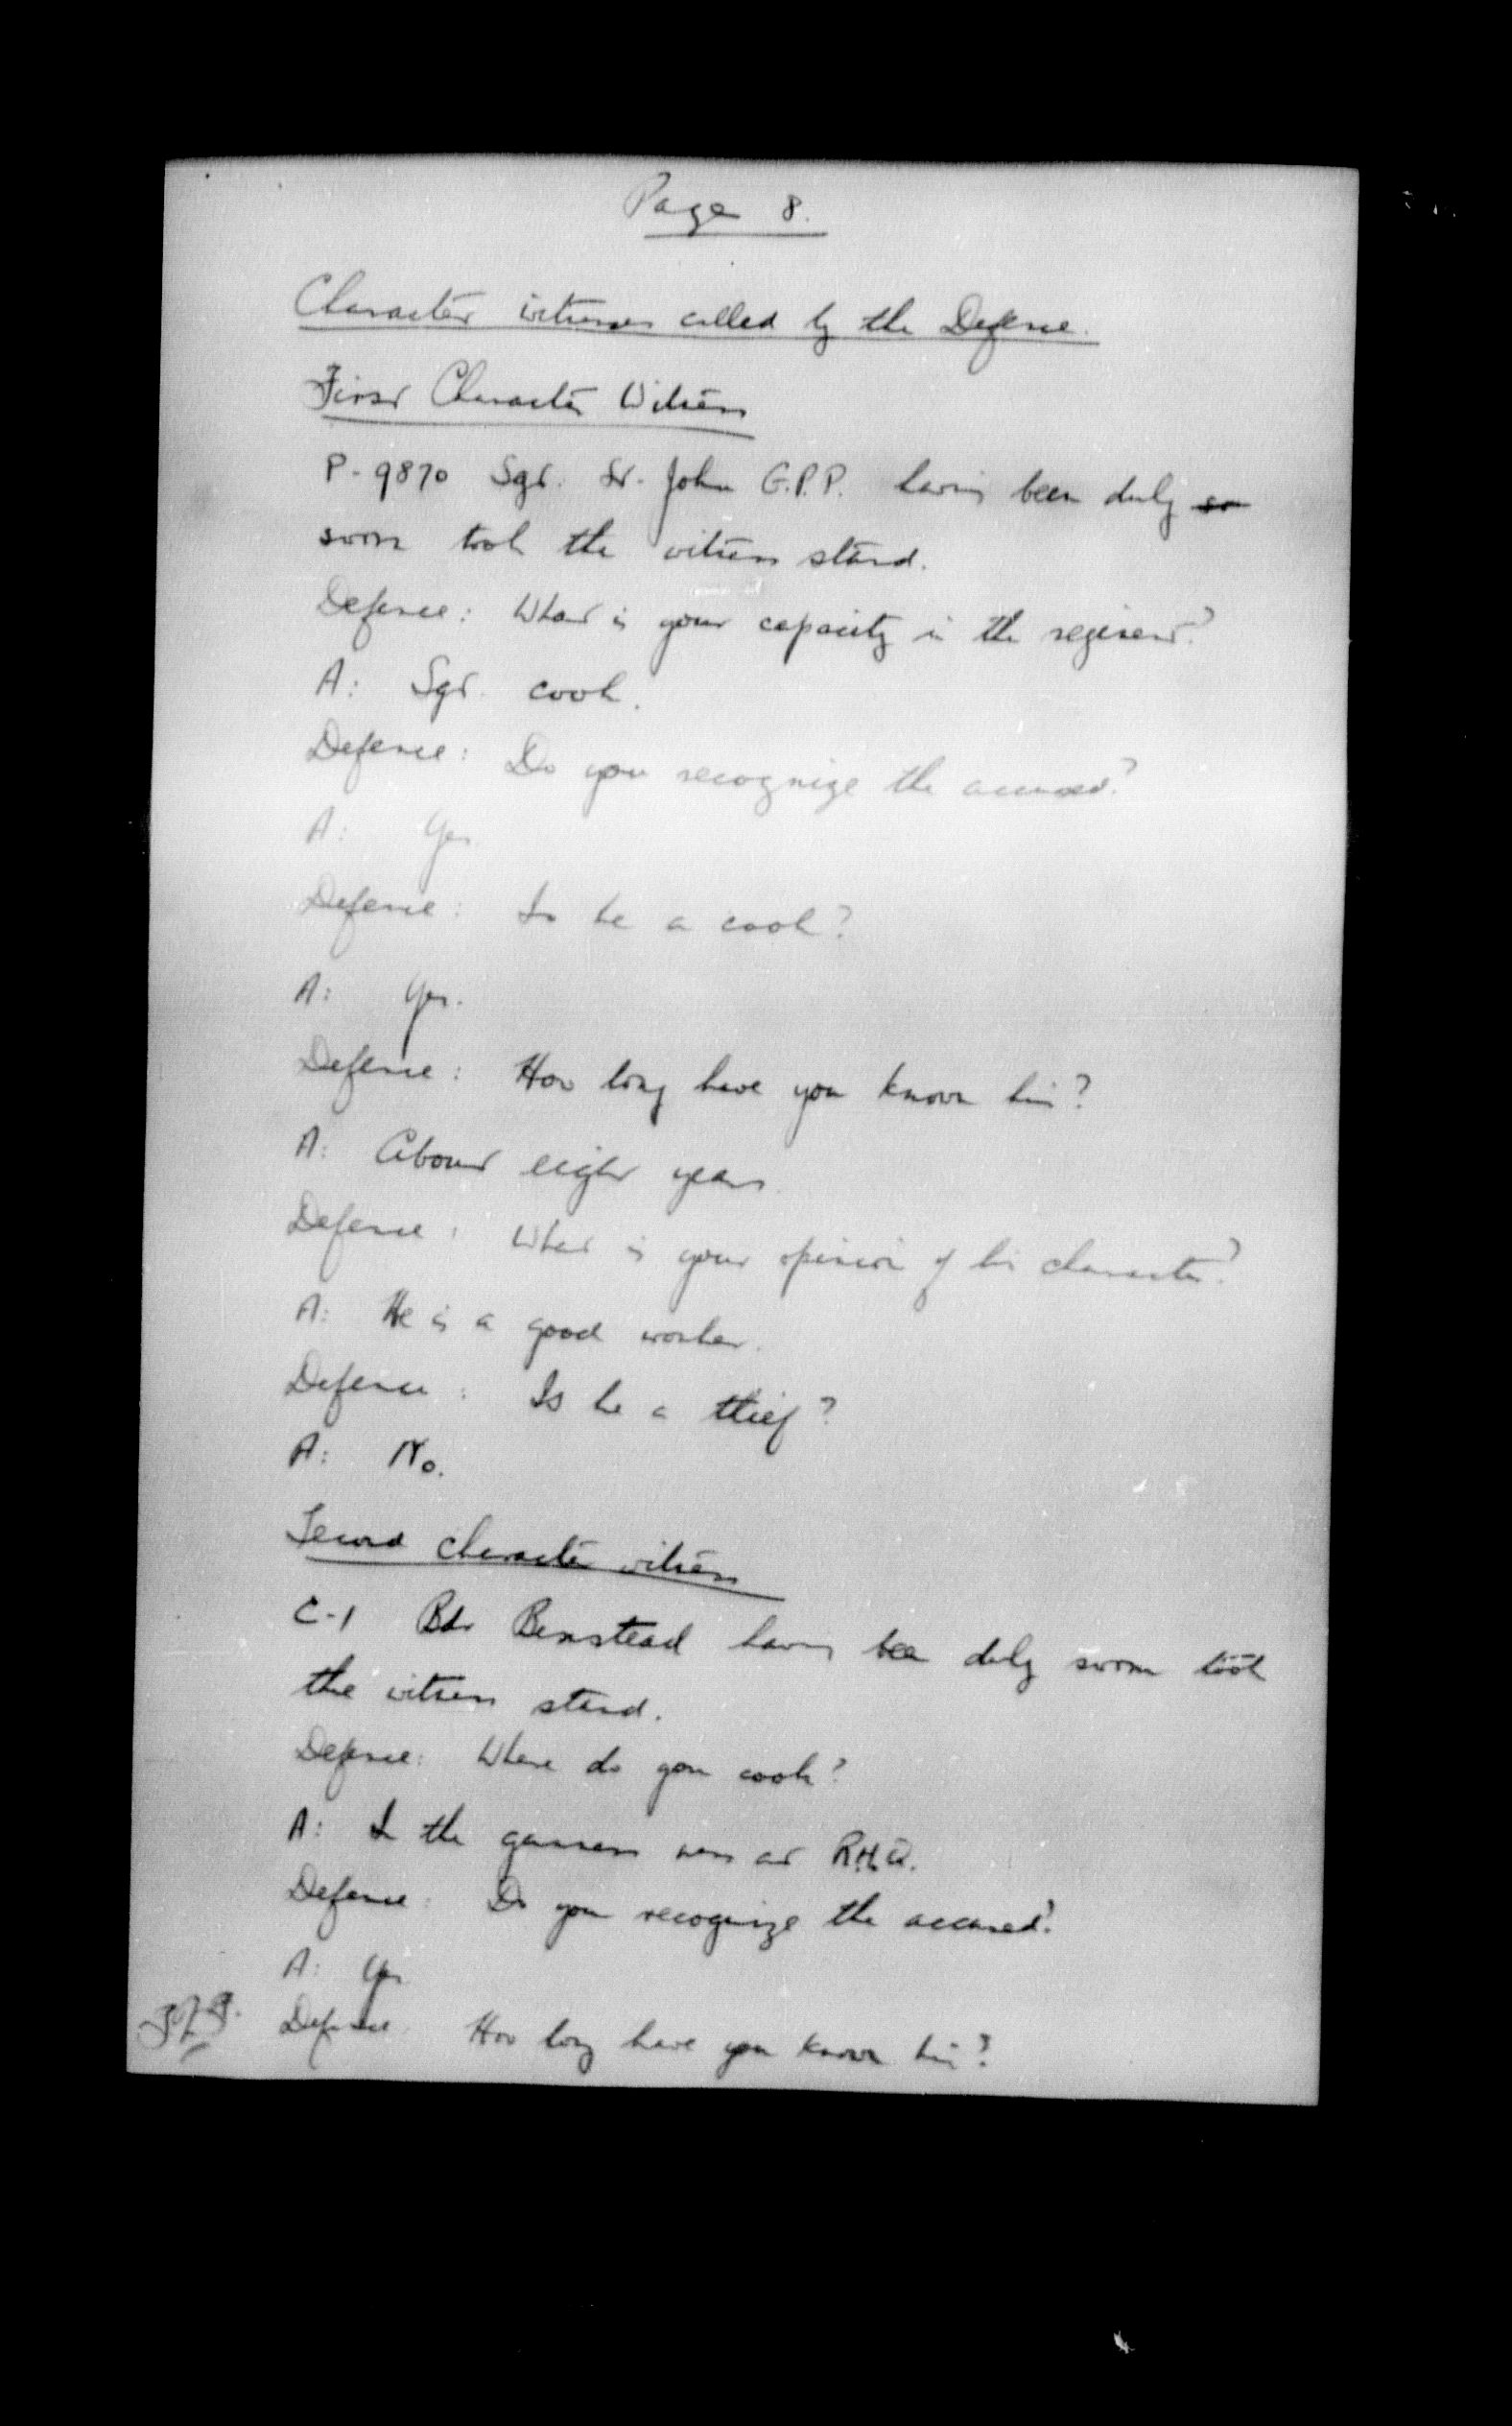 Page 8.
Character witnesses called by the Defense.
First Character Witness
P-9870 Sgt. St. John G.P.P. having been duly so
sworn took the witness stand.
Defense: What is your capacity in the regiment?
A: Sgt. cook.
Defense: Do you recognize the accused?
A: Yes
Defense: Is he a cook?
A: Yes.
Defense: How long have you known him?
A: About eight years.
Defense: What is your opinion of his character?
A: He is a good worker.
Defense: Is he a thief?
A: No.
Second character witness
C-1 Bdr Benstead having been duly sworn took
the witness stand.
Defense: Where do you cook?
A: In the gunners mess at R.H.Q.
Defense: Do you recognize the accused?
A: Yes
Defense: How long have you known him?